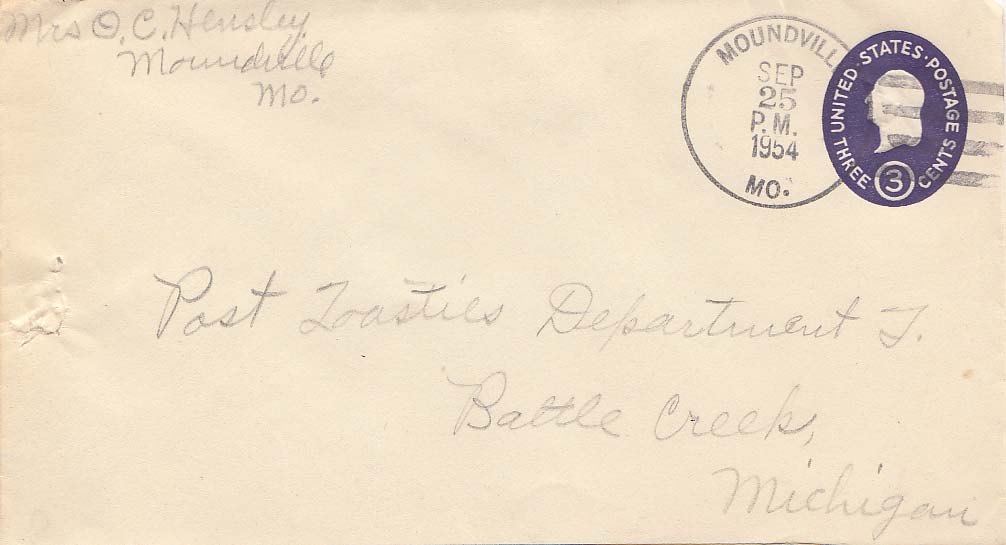 Mrs O. C. Hensley
Moundville
Mo.
MOUNDVILL
SEP
25
P.M.
1954
MO.
UNITED STATES POSTAGE
THREE 3 CENTS
Post Toasties Department T.
Battle Creek,
Michigan